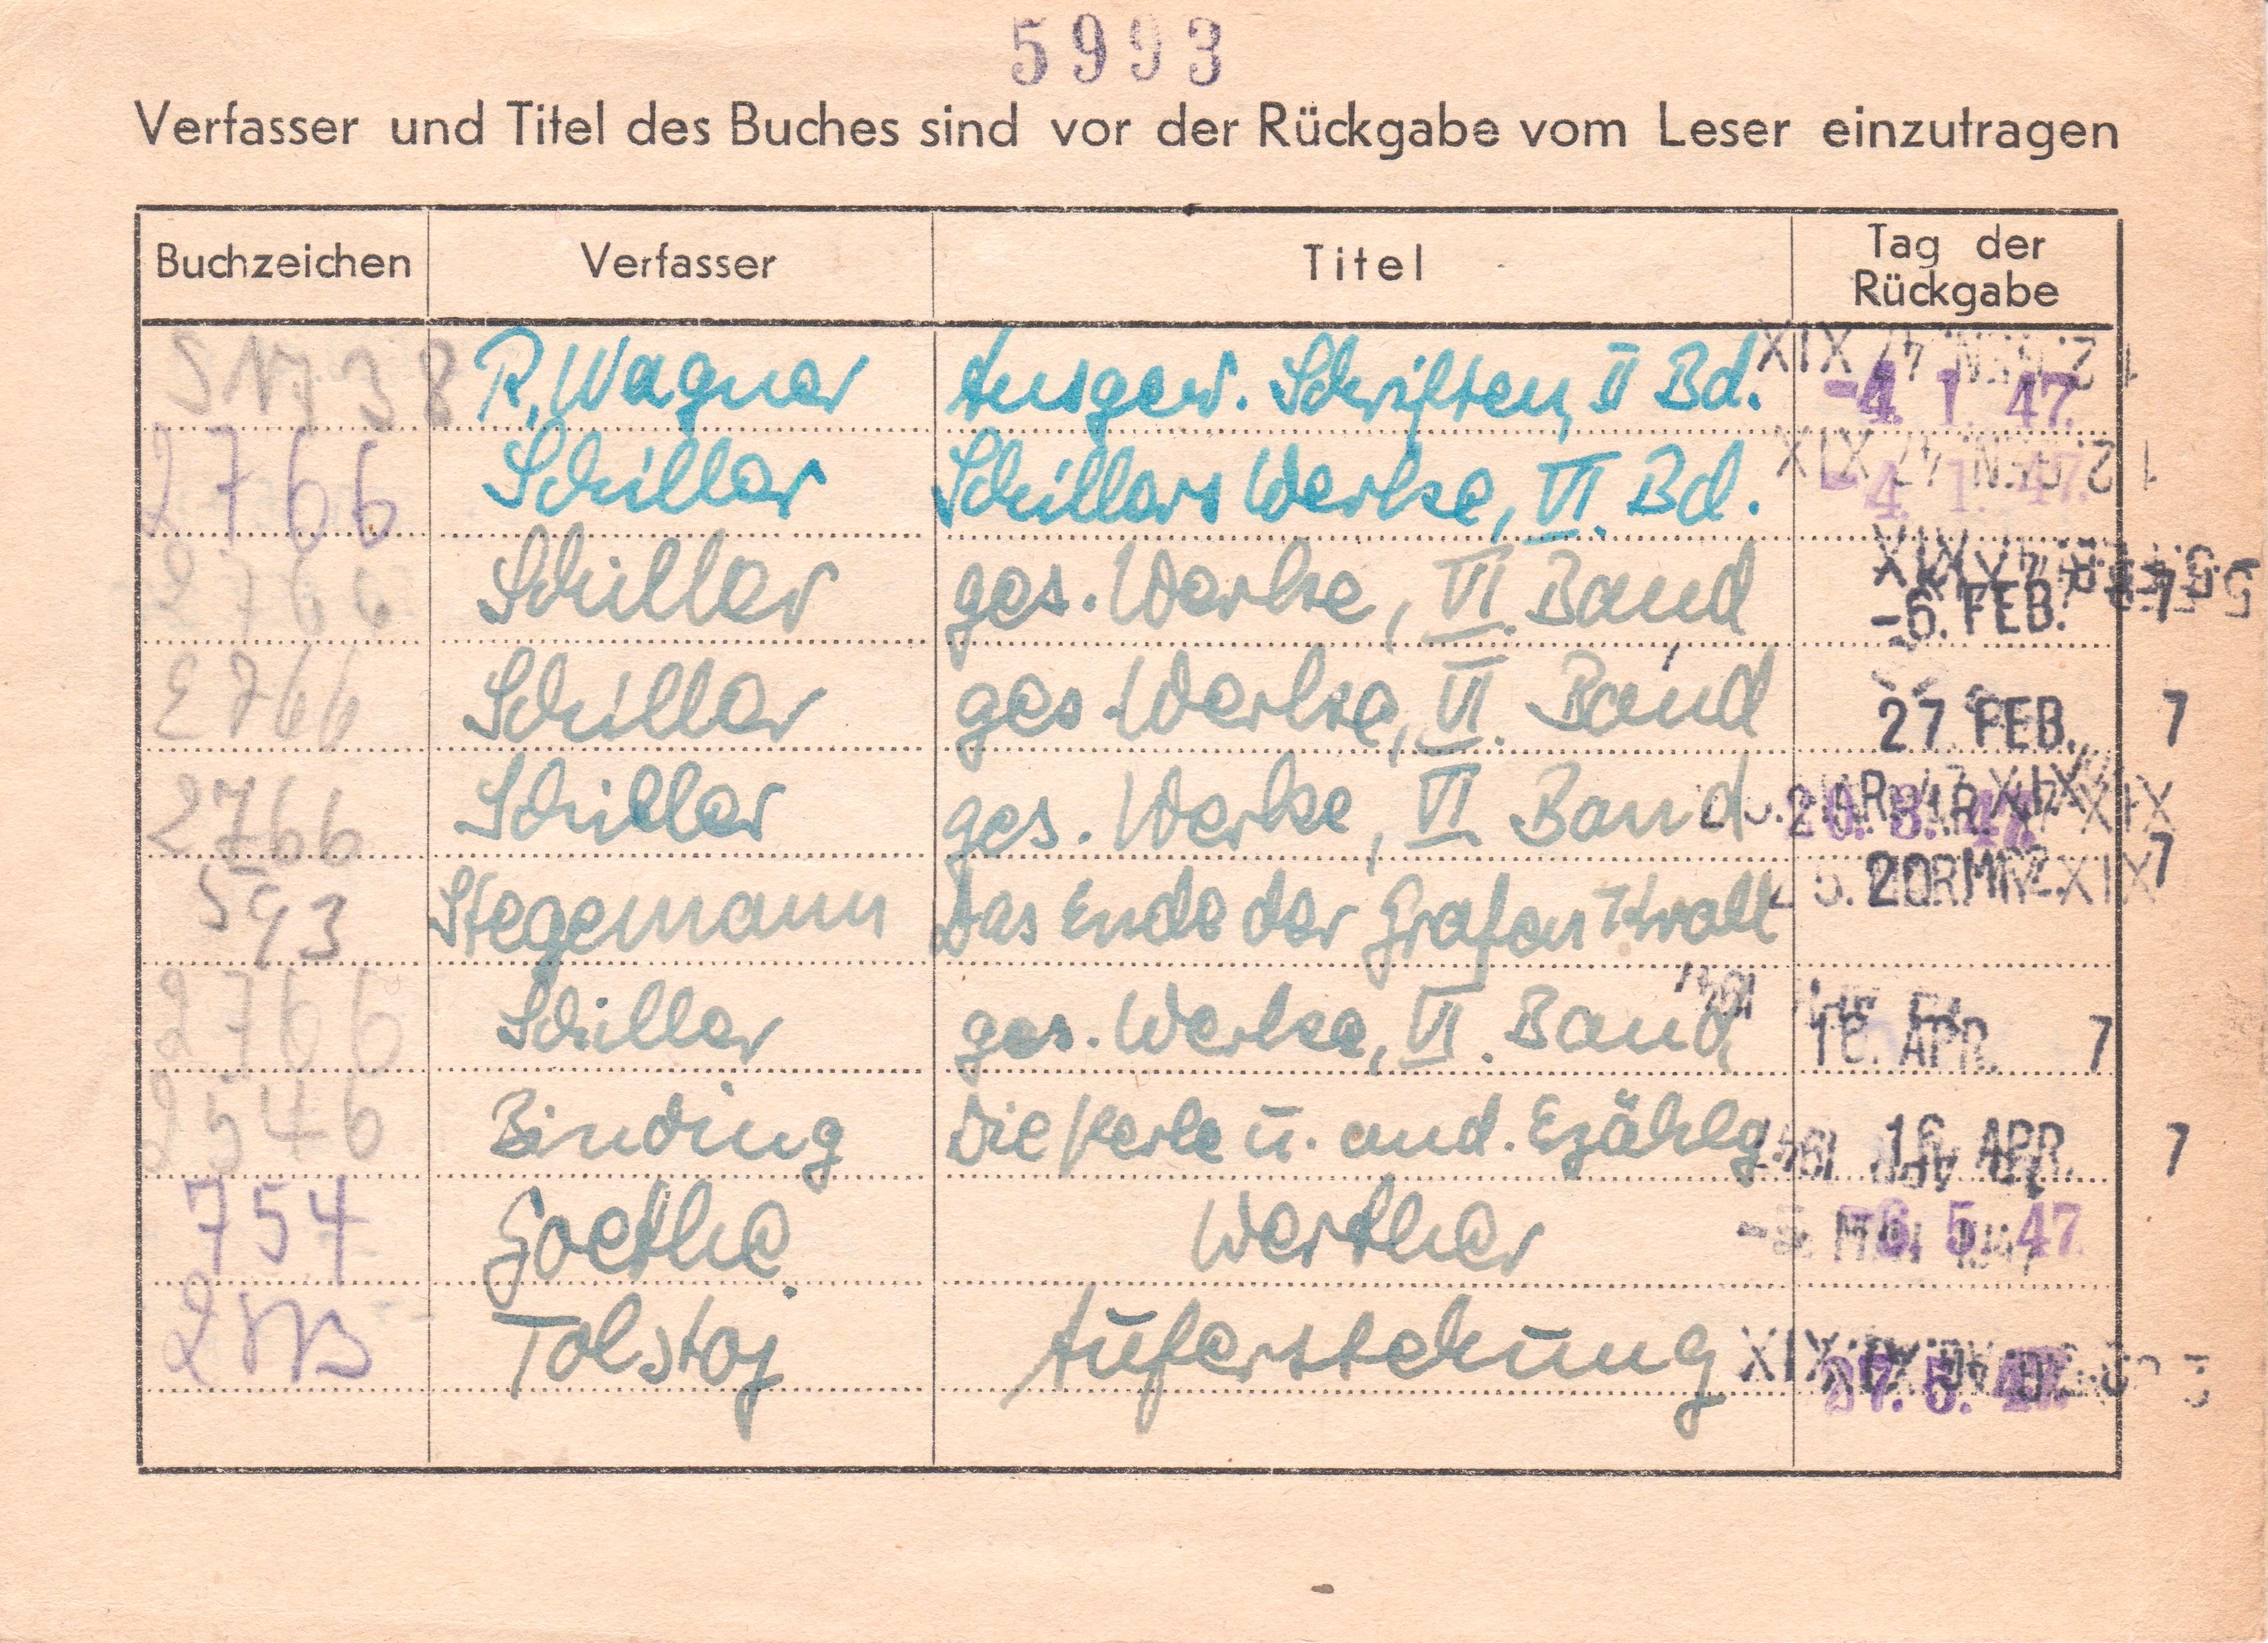 5993
Verfasser und Titel des Buches sind vor der Rückgabe vom Leser einzutragen
Buchzeichen Verfasser Titel Tag der Rückgabe
R. Wagner Ausgew. Schriften, II Bd. -4. 1. 47.
2766 Schiller Schillers Werke, VI. Bd. -4. 1. 47.
2766 Schiller ges. Werke, VI. Band -6. FEB. 7
2766 Schiller ges. Werke, VI. Band 27. FEB. 7
2766 Schiller ges. Werke, VI Band
593 Stegemann Das Ende der Grafen Krall 20. MRZ. 7
2766 Schiller ges. Werke, VI. Band 16. APR. 7
2546 Binding Die Perle u. and. Ezählg 16. APR. 7
754 Goethe Werther -6. 5. 47.
Tolstoj Auferstehung 27. 5. 47.